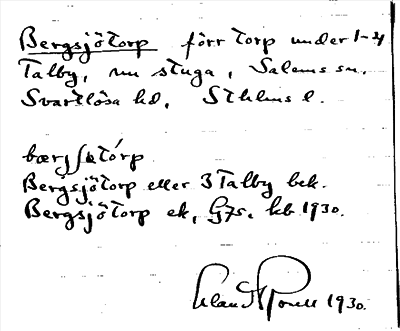 Bergsjötorp förr torp under 1-4
Talby, nu stuga, Salems sn.
Svartlösa hd, Sthlms l.
bærjʃötórp
Bergsjötorp eller 3 Talby bek.
Bergsjötorp ek, G7s. kb 1930.
1930.